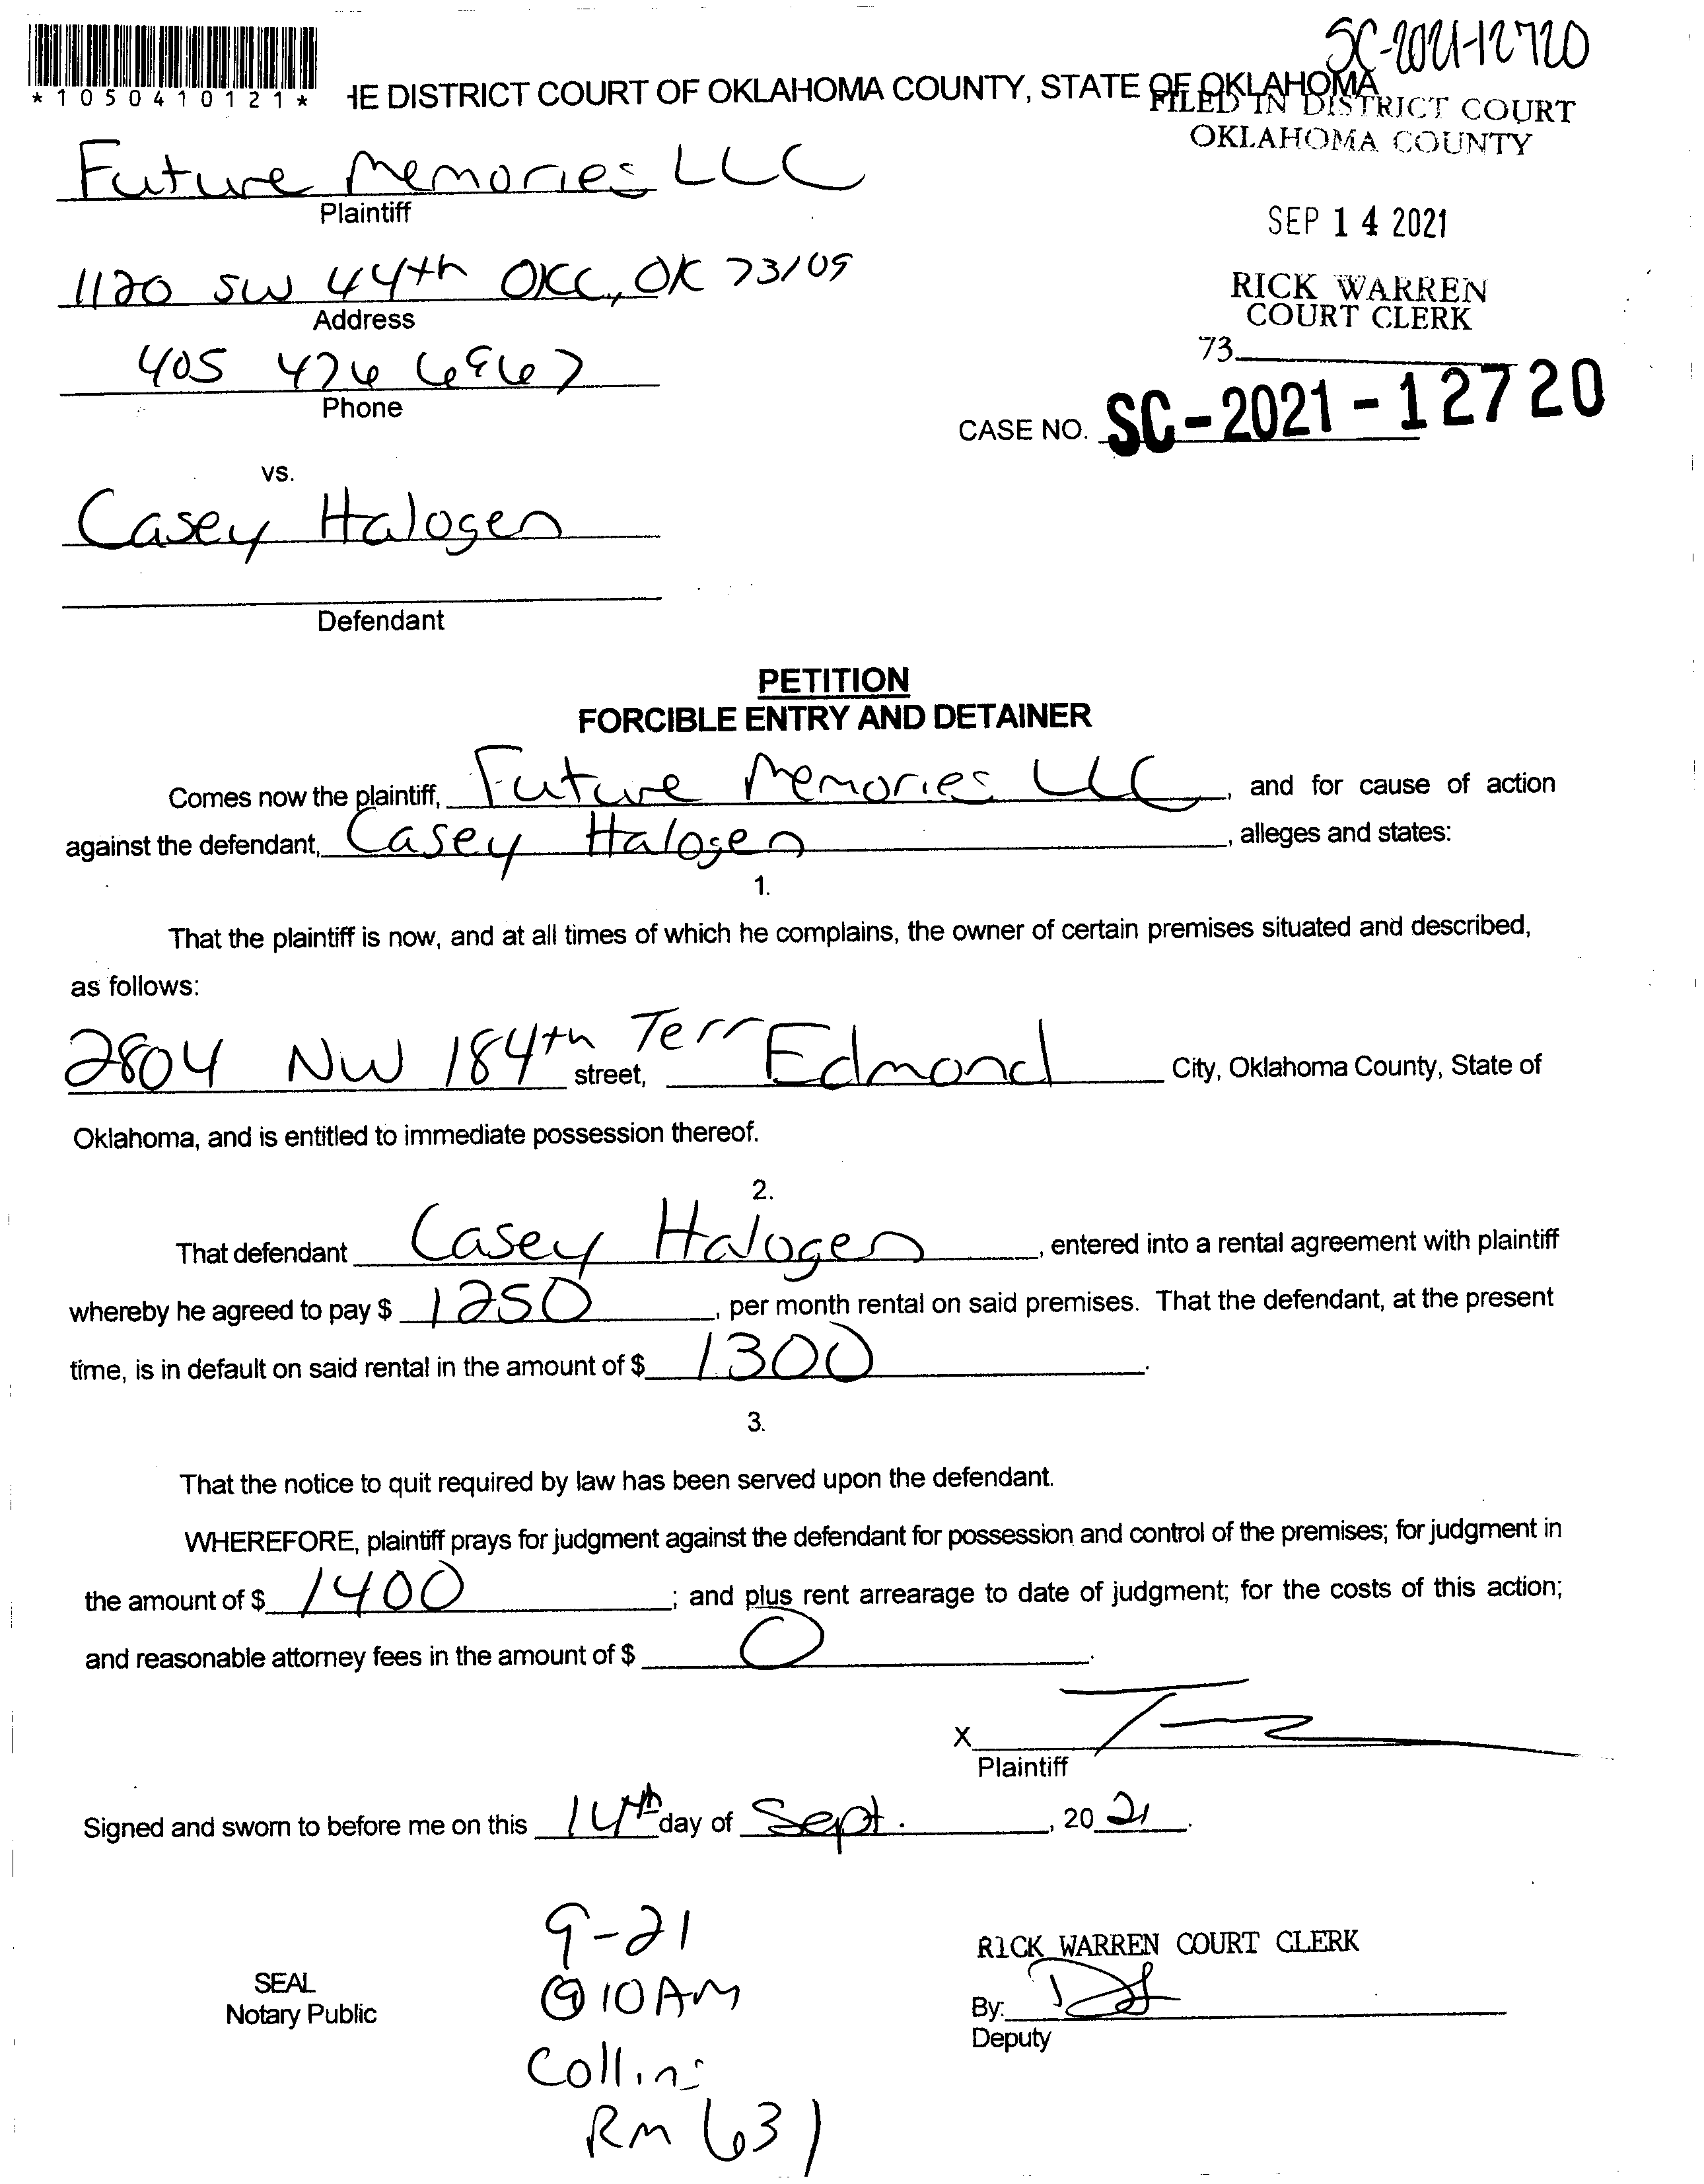 SC-2021-12720
*1050410121*
HE DISTRICT COURT OF OKLAHOMA COUNTY, STATE OF OKLAHOMA
FILED IN DISTRICT COURT
OKLAHOMA COUNTY
Future Memories LLC
Plaintiff
SEP 14 2021
1120 SW 44th OKC, OK 73109
Address
RICK WARREN
COURT CLERK
405 476 6967
Phone
73
CASE NO. SC-2021-12720
vs.
Casey Halogen
Defendant
PETITION
FORCIBLE ENTRY AND DETAINER
Comes now the plaintiff, Future Memories LLC, and for cause of action
against the defendant, Casey Halogen, alleges and states:
1.
That the plaintiff is now, and at all times of which he complains, the owner of certain premises situated and described,
as follows:
2804 NW 184th Terr street, Edmond City, Oklahoma County, State of
Oklahoma, and is entitled to immediate possession thereof.
2.
That defendant Casey Halogen, entered into a rental agreement with plaintiff
whereby he agreed to pay $ 1250, per month rental on said premises. That the defendant, at the present
time, is in default on said rental in the amount of $ 1300.
3.
That the notice to quit required by law has been served upon the defendant.
WHEREFORE, plaintiff prays for judgment against the defendant for possession and control of the premises; for judgment in
the amount of $ 1400; and plus rent arrearage to date of judgment; for the costs of this action;
and reasonable attorney fees in the amount of $ 0.
X
Plaintiff
Signed and sworn to before me on this 14th day of Sept., 2021.
9-21
@ 10 AM
Collins
Rm 631
SEAL
Notary Public
RICK WARREN COURT CLERK
By:
Deputy